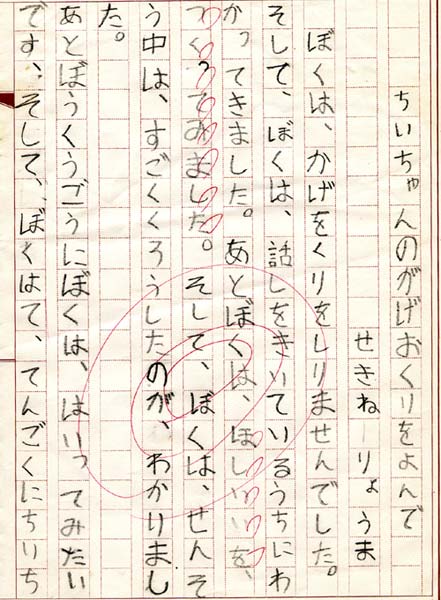 ちいちゃんのがげおくりをよんで
せきねりょうま
ぼくは、かげをくりをしりませんでした。
そして、ぼくは、話しをきいているうちにわ
かってきました。あとぼくは、ほしいいを、
つくってみました。そして、ぼくは、せんそ
う中は、すごくくろうしたのが、わかりまし
た。
あとぼうくうごうにぼくは、はいってみたい
です、そして、ぼくはて、てんごくにちりち